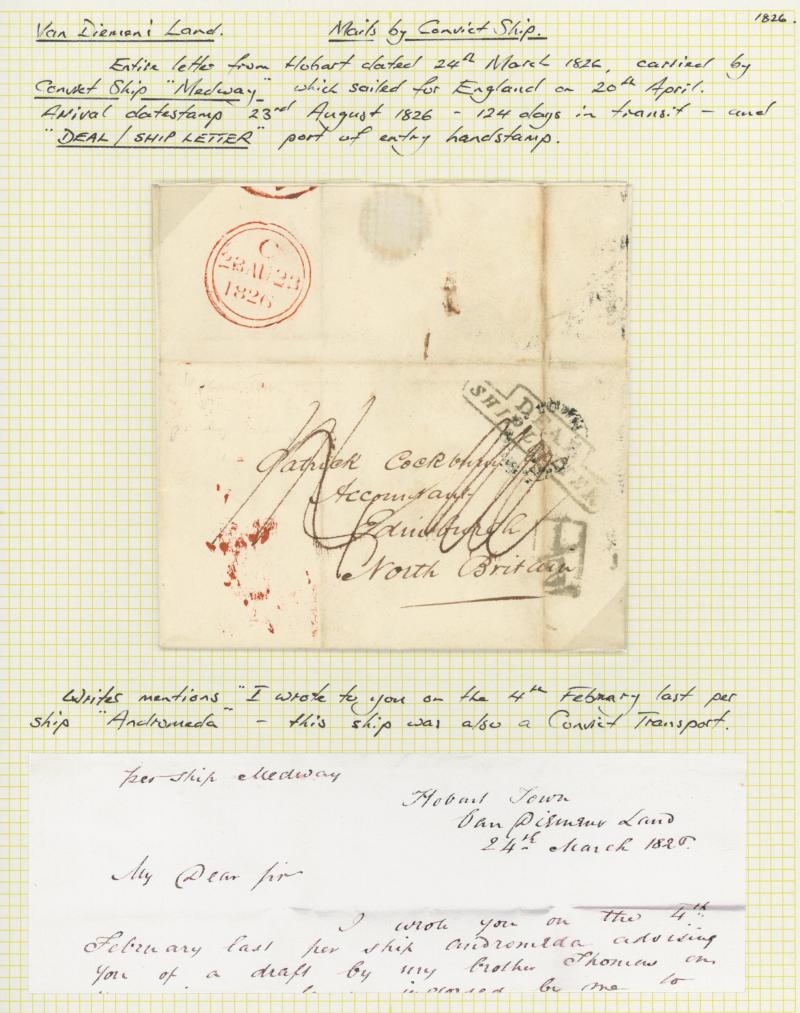 1826.
Van Diemens Land. Mails by Convict Ship.
Entire letter from Hobart dated 24th March 1826, carried by
Convict Ship "Medway" which sailed for England on 20th April.
Arival datestamp 23rd August 1826 - 124 days in transit - and
"DEAL / SHIP LETTER" port of entry handstamp.
C
23AU23
1826
DEAL
SHIP LETTER
Patrick Cockburn
Accomptant
Edinburgh
North Britain
Writer mentions "I wrote to you on the 4th February last per
ship "Andromeda" - this ship was also a Convict Transport.
per ship Medway
Hobart Town
Van Diemens Land
24th March 1826.
My Dear Sir
I wrote you on the 4th
February last per ship Andromeda advising
you of a draft by my brother Thomas on
by me to